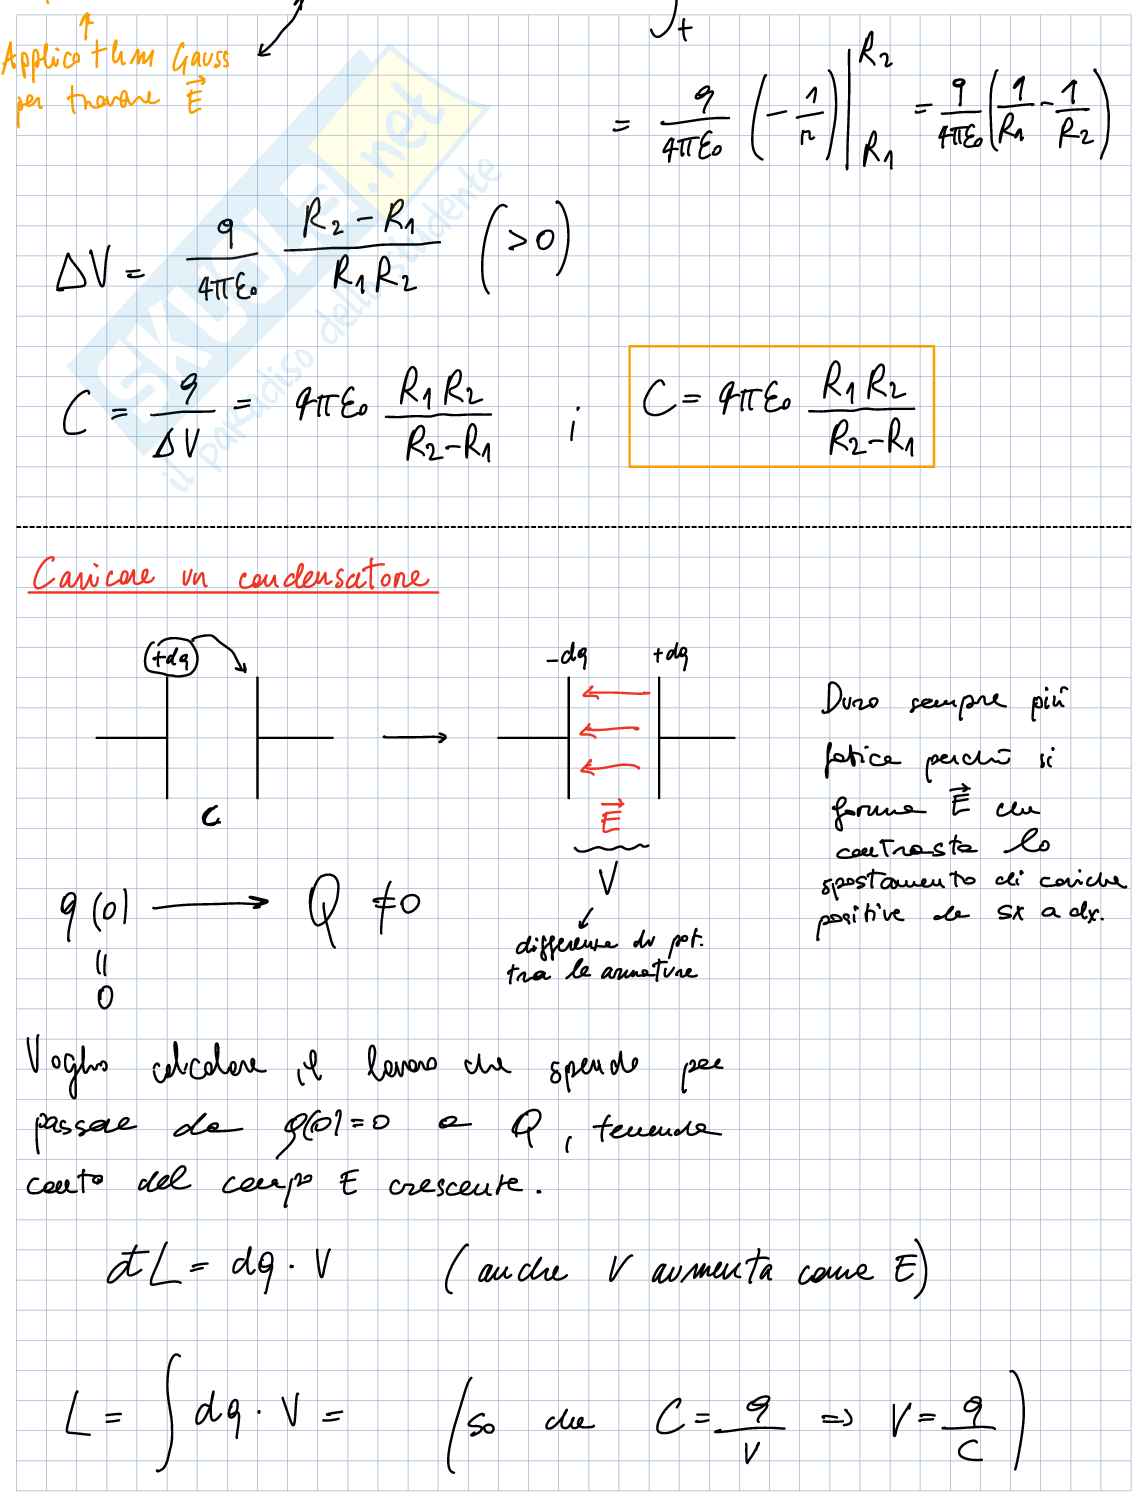 Applico thm Gauss
per trovare E⃗
= q/4πε₀ (-1/r) |R₁ R₂ = q/4πε₀ (1/R₁ - 1/R₂)
ΔV = q/4πε₀ R₂-R₁/R₁R₂ (>0)
C = q/ΔV = 4πε₀ R₁R₂/R₂-R₁ ; C = 4πε₀ R₁R₂/R₂-R₁
SKUOLA.net
il paradiso dello studente
Caricare un condensatore
+dq
C
-dq +dq
E⃗
V
differenza di pot.
tra le armature
Duro sempre più
fatica perché si
forma E⃗ che
contrasta lo
spostamento di cariche
positive da sx a dx.
q(0) → Q ≠0
=
0
Voglio calcolare il lavoro che spendo per
passare da q(0)=0 a Q, tenendo
conto del campo E crescente.
dL = dq · V (anche V aumenta come E)
L = ∫ dq · V = (so che C = q/V => V = q/C)